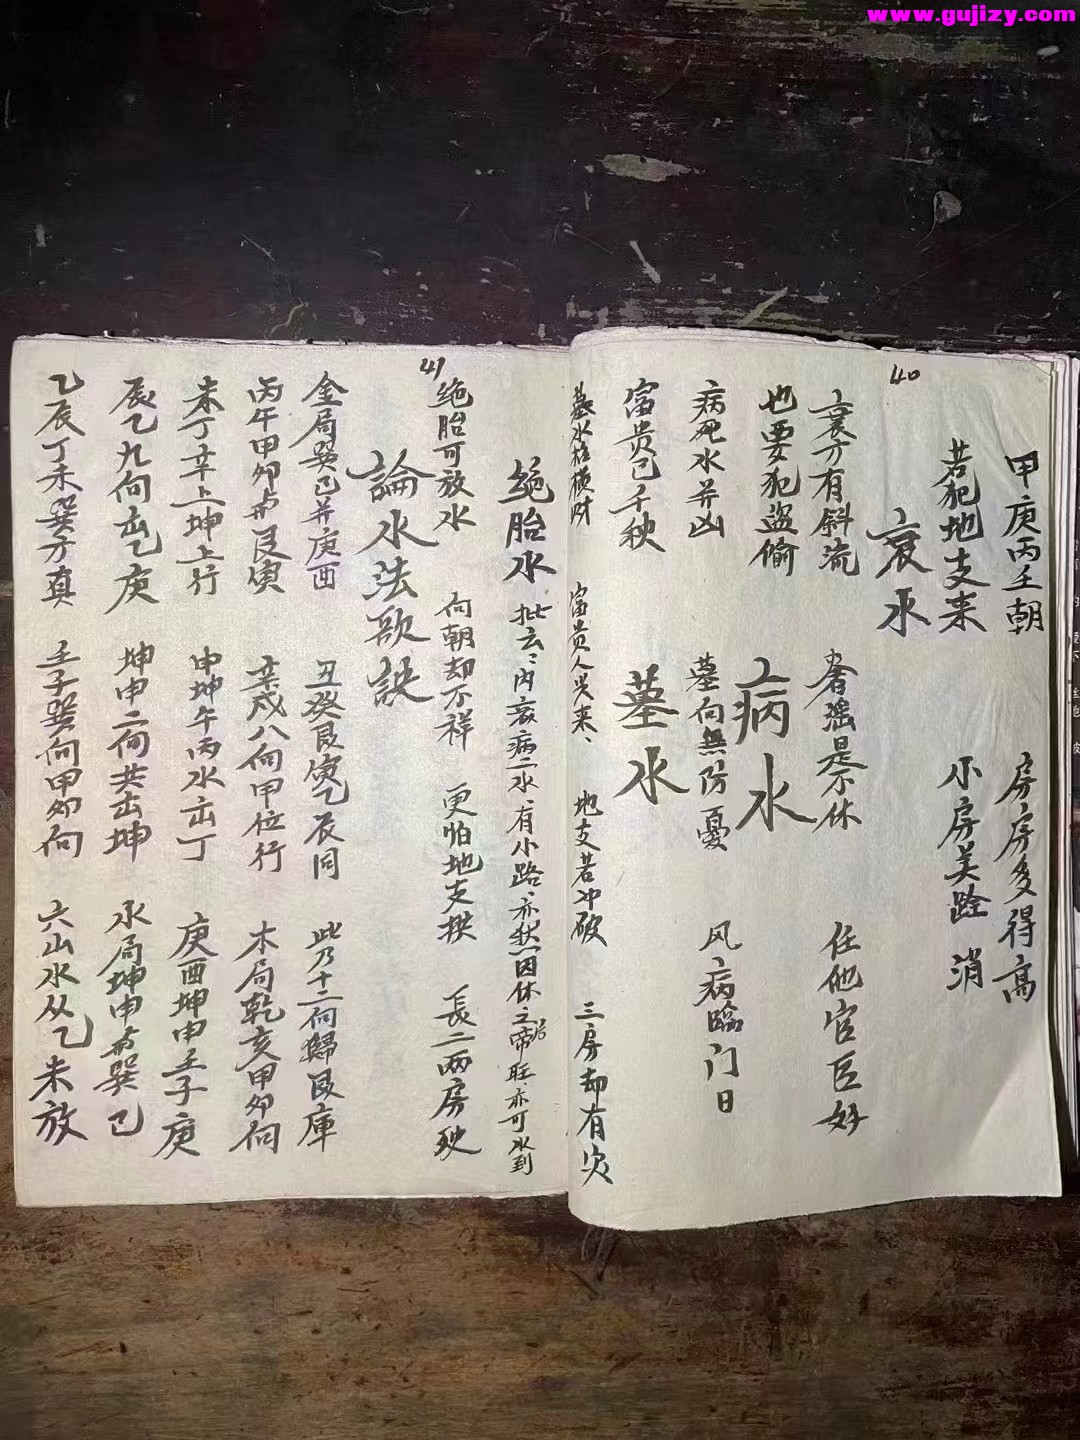 www.gujizy.com
40
甲庚丙壬朝 房房多得高
若犯地支来 小房美跧消
衰水
衰方有斜流 奢淫是不休 任他官臣好
也要犯盗偷
病水
病死水并凶 墓向無防憂 风病臨门日
富贵已千秋
墓水
墓水招横财 富贵人兴来、 地支若冲破 三房却有灾
41
绝胎水 批云:内衰病二水、有小路、亦然因休之帝旺、亦可水到
绝胎可放水 向朝却不祥 更怕地支挨 長二两房殃
論水法歌訣
金局巽巳并庚酉 丑癸艮寅乙辰同 此乃十二向歸艮庫
丙午甲卯与艮寅 辛戌八向甲位行 木局乾亥甲卯向
未丁辛上坤上行 申坤午丙水出丁 庚酉坤申壬子庚
辰乙九向出乙庚 坤申二向共出坤 水局坤申与巽巳
乙辰丁未巽方真 壬子巽向甲卯向 六山水从乙未放